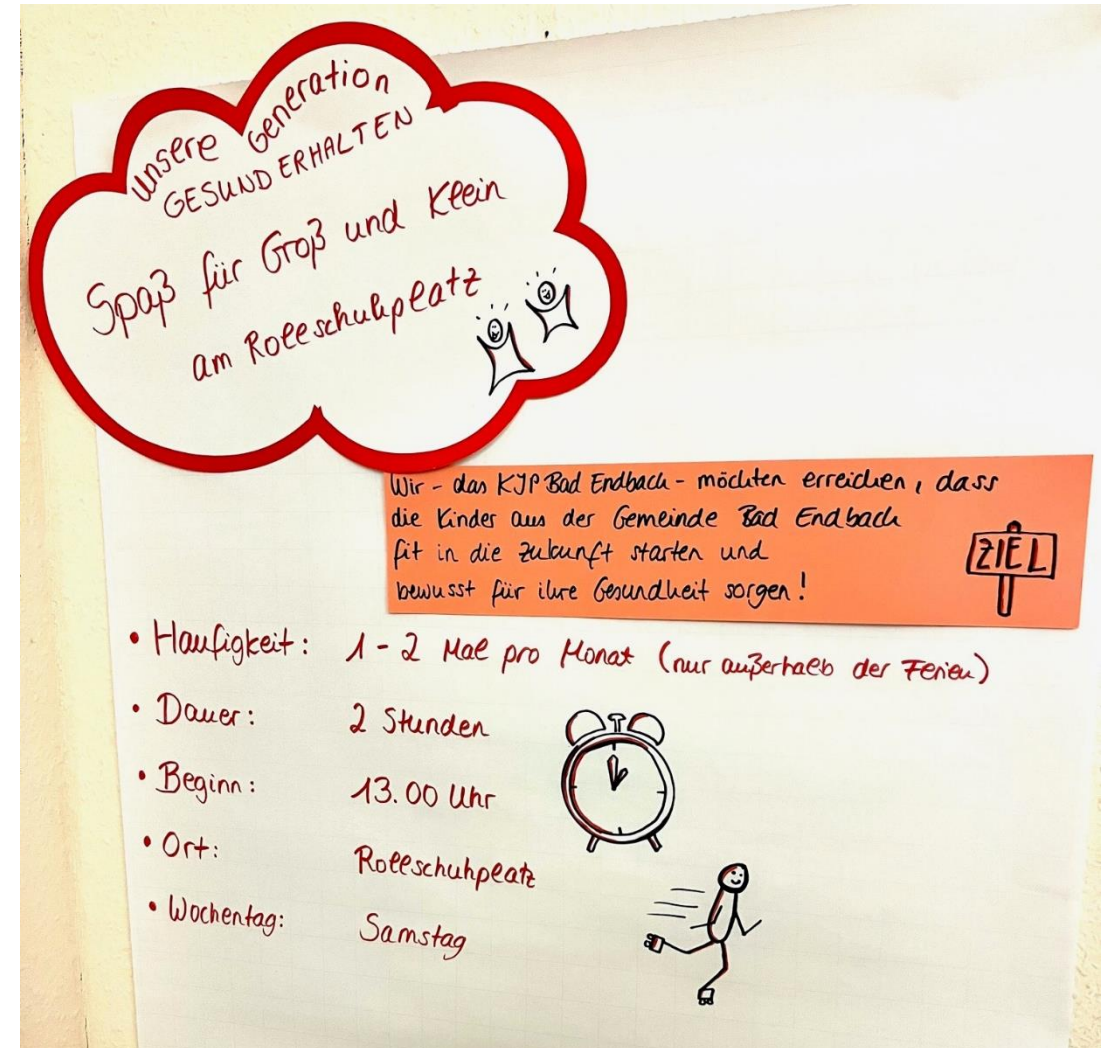 unsere Generation
GESUND ERHALTEN
Spaß für Groß und Klein
am Rollschuhplatz
Wir - das KJP Bad Endbach - möchten erreichen, dass
die Kinder aus der Gemeinde Bad Endbach
fit in die Zukunft starten und
bewusst für ihre Gesundheit sorgen!
ZIEL
• Häufigkeit: 1 - 2 Mal pro Monat (nur außerhalb der Ferien)
• Dauer: 2 Stunden
• Beginn: 13.00 Uhr
• Ort: Rollschuhplatz
• Wochentag: Samstag